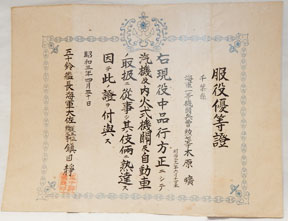 服役優等證
千葉縣
海軍一等機關兵曹
木原
右現役中品行方正ニシテ
汽機及内火式機關及自動車
ノ取扱ニ從事シ其伎倆熟達ス
因テ此ノ證ヲ付與ス
昭和三年四月五十日
五十鈴艦長海軍大佐